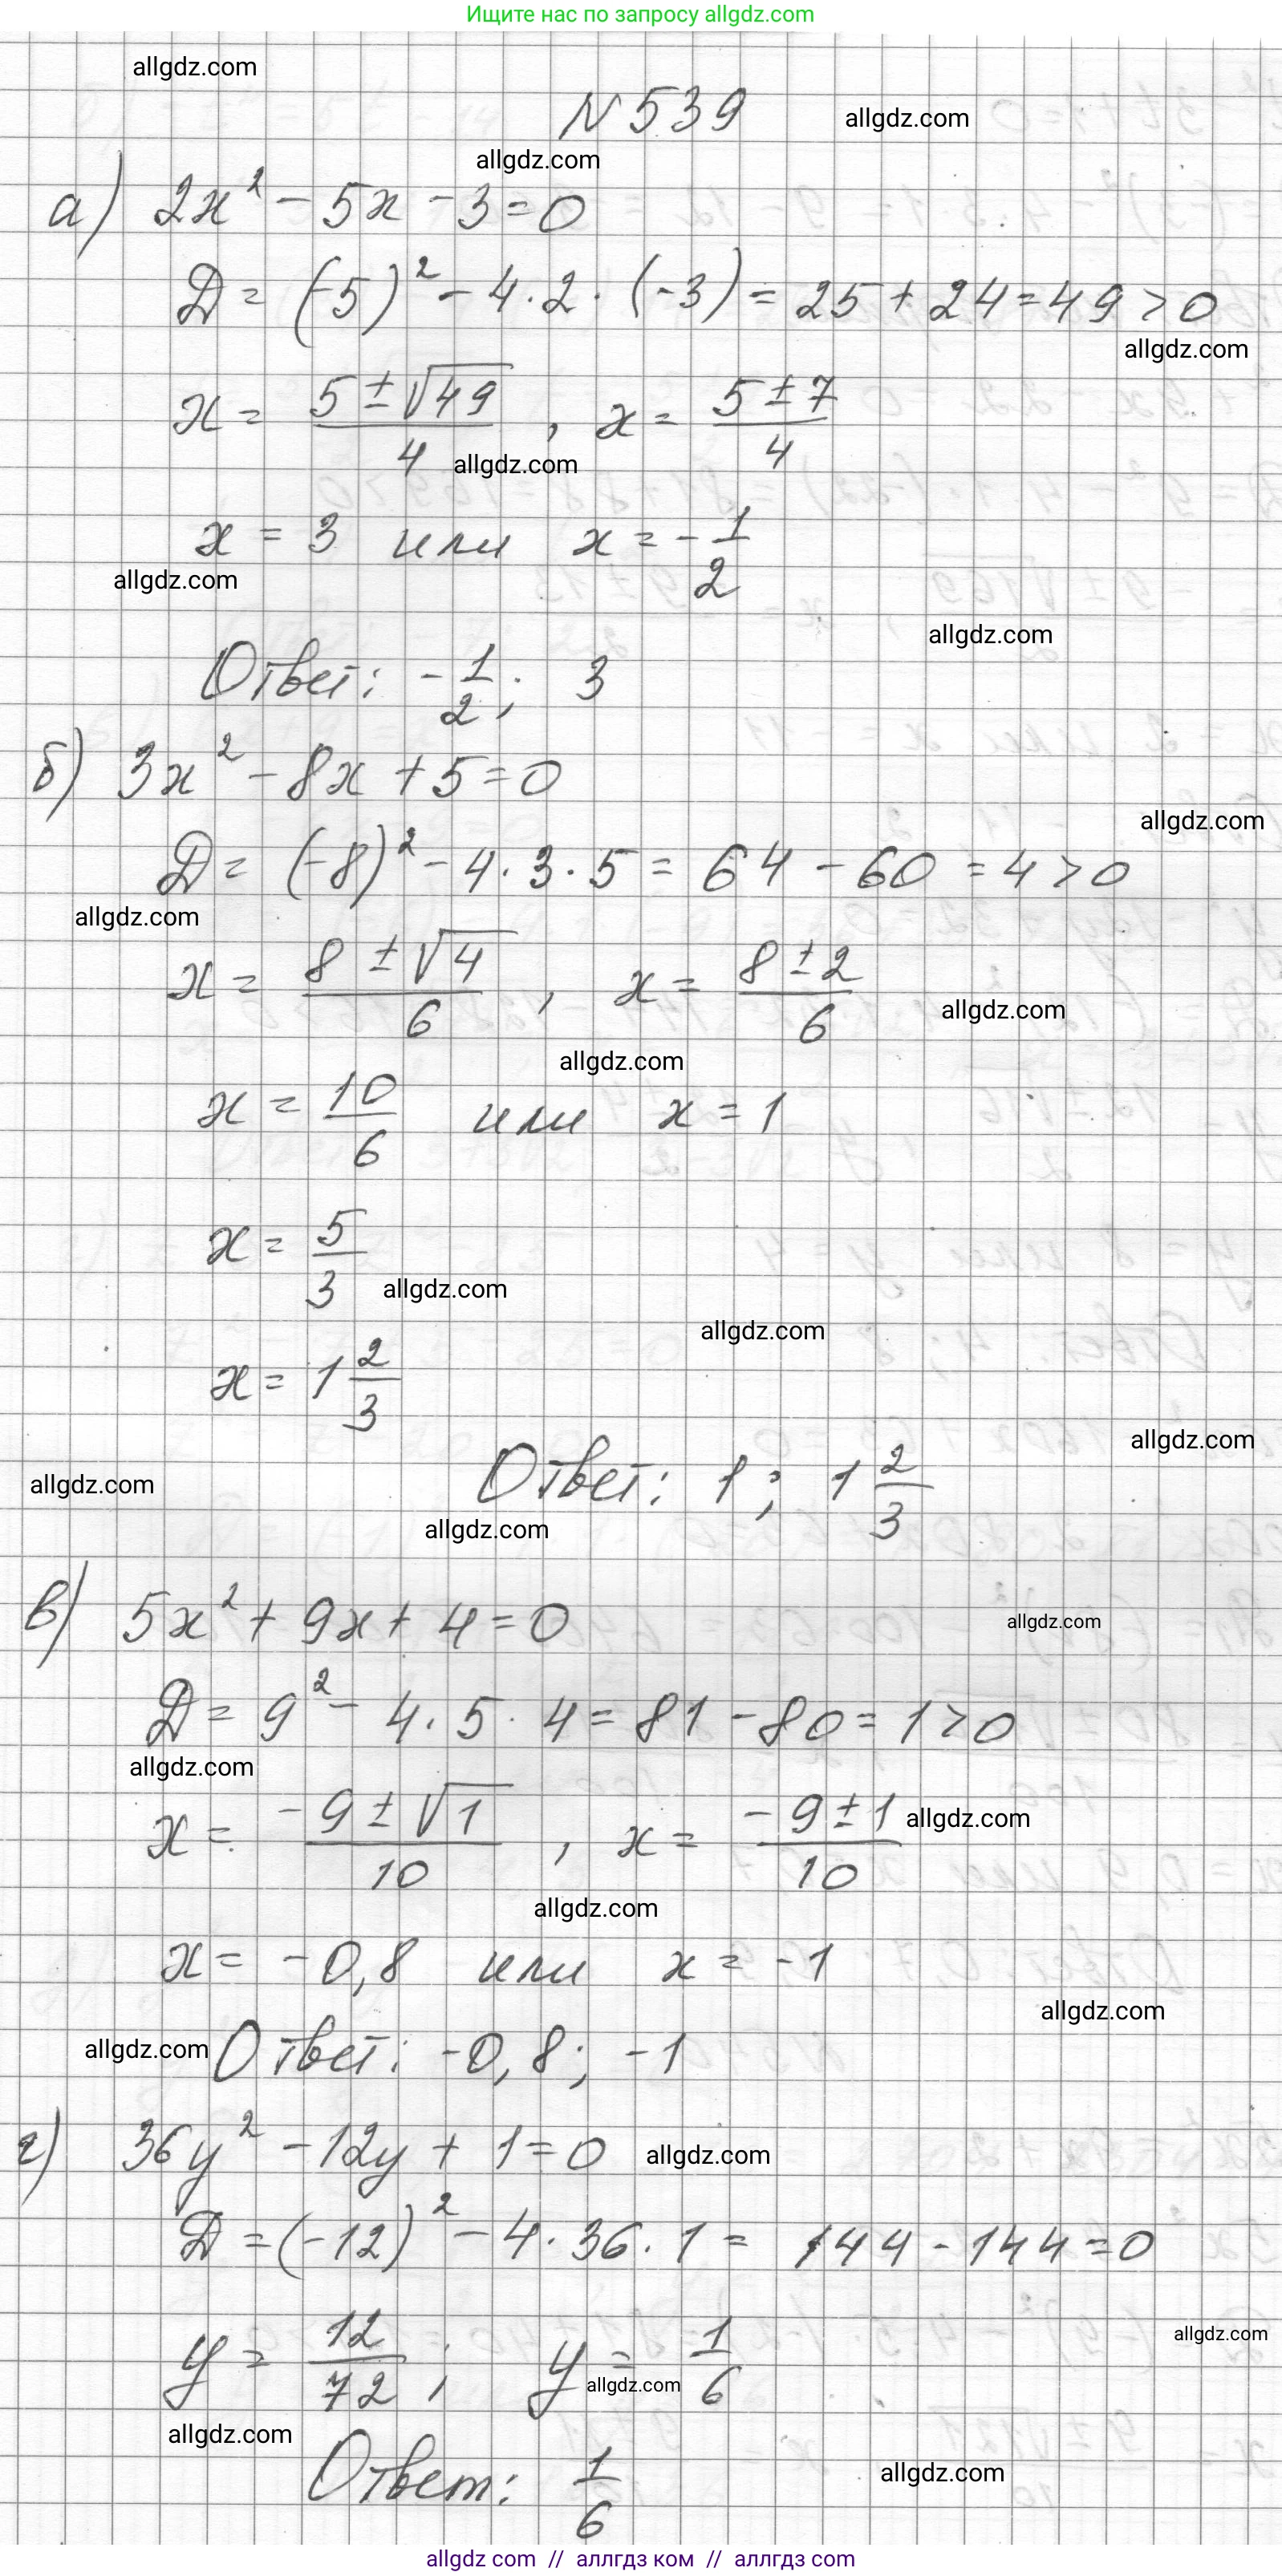 Ищите нас по запросу allgdz.com
allgdz.com
N 539 allgdz.com
allgdz.com
а) 2x² - 5x - 3 = 0
D = (-5)² - 4 · 2 · (-3) = 25 + 24 = 49 > 0
allgdz.com
x = (5 ± √49)/4 , x = (5 ± 7)/4
allgdz.com
x = 3 или x = -1/2
allgdz.com
allgdz.com
Ответ: -1/2; 3
б) 3x² - 8x + 5 = 0
allgdz.com
D = (-8)² - 4 · 3 · 5 = 64 - 60 = 4 > 0
allgdz.com
x = (8 ± √4)/6 , x = (8 ± 2)/6
allgdz.com
allgdz.com
x = 10/6 или x = 1
x = 5/3
allgdz.com
allgdz.com
x = 1 2/3
allgdz.com
Ответ: 1; 1 2/3
allgdz.com
allgdz.com
в) 5x² + 9x + 4 = 0 allgdz.com
D = 9² - 4 · 5 · 4 = 81 - 80 = 1 > 0
allgdz.com
x = (-9 ± √1)/10 , x = (-9 ± 1)/10 allgdz.com
allgdz.com
x = -0,8 или x = -1
allgdz.com
allgdz.com Ответ: -0,8; -1
г) 36y² - 12y + 1 = 0 allgdz.com
D = (-12)² - 4 · 36 · 1 = 144 - 144 = 0
allgdz.com
y = 12/72 ; y = 1/6
allgdz.com
allgdz.com
Ответ: 1/6
allgdz.com
allgdz com // аллгдз ком // аллгдз com